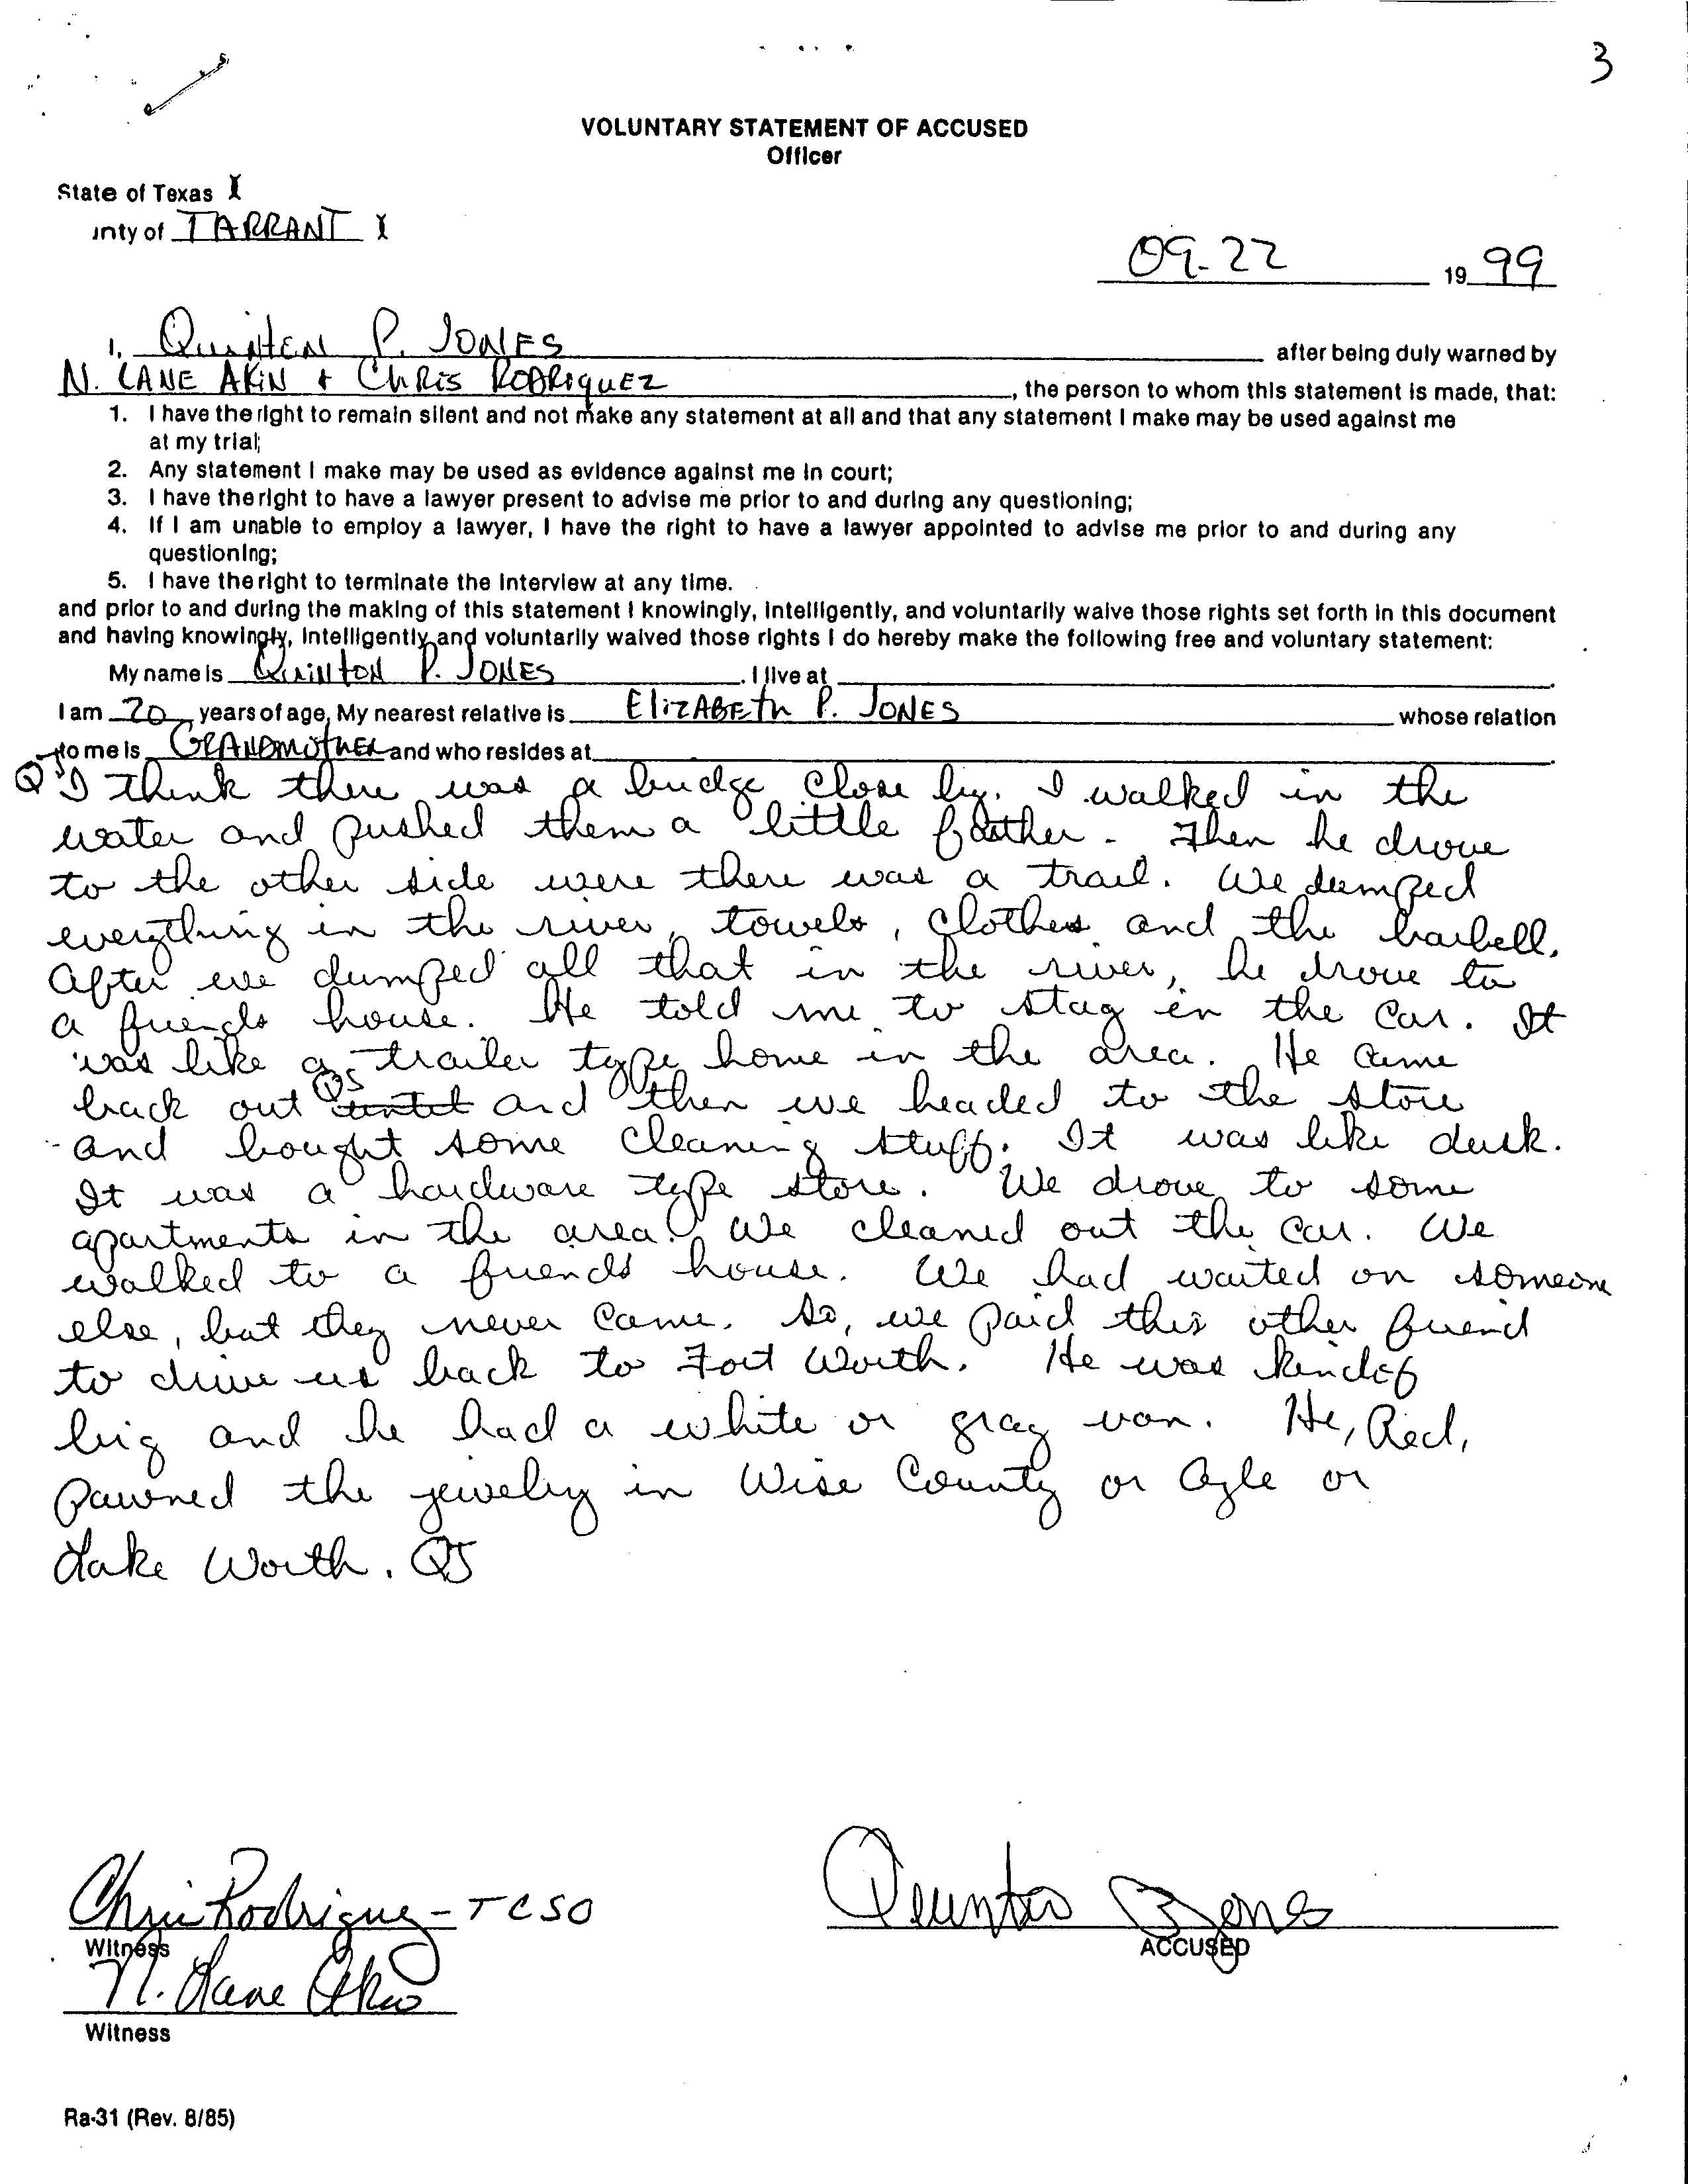 3
VOLUNTARY STATEMENT OF ACCUSED
Officer
State of Texas X
unty of TARRANT X
09-22 1999
I, Quinten P. JONES after being duly warned by
N. LANE AKIN + Chris RODRIGUEZ, the person to whom this statement is made, that:
1. I have the right to remain silent and not make any statement at all and that any statement I make may be used against me
at my trial;
2. Any statement I make may be used as evidence against me in court;
3. I have the right to have a lawyer present to advise me prior to and during any questioning;
4. If I am unable to employ a lawyer, I have the right to have a lawyer appointed to advise me prior to and during any
questioning;
5. I have the right to terminate the interview at any time.
and prior to and during the making of this statement I knowingly, intelligently, and voluntarily waive those rights set forth in this document
and having knowingly, intelligently and voluntarily waived those rights I do hereby make the following free and voluntary statement:
My name is Quinton P. JONES. I live at
I am 20 years of age, My nearest relative is ElizABeth P. JONES whose relation
to me is GRANDMOTHER and who resides at
QJ I think there was a bridge close by. I walked in the
water and pushed them a little farther. Then he drove
to the other side were there was a trail. We dumped
everything in the river, towels, clothes and the barbell.
After we dumped all that in the river, he drove to
a friends house. He told me to stay in the car. It
was like a trailer type home in the area. He came
back out QJ and then we headed to the store
and bought some cleaning stuff. It was like dusk.
It was a hardware type store. We drove to some
apartments in the area. We cleaned out the car. We
walked to a friends house. We had waited on someone
else, but they never came. So, we paid this other friend
to drive us back to Fort Worth. He was kindof
big and he had a white or gray van. He, Red,
pawned the jewelry in Wise County or Azle or
Lake Worth. QJ
Chris Rodriguez - TCSO
Quinton Jones
Witness
ACCUSED
N. Lane Akin
Witness
Ra-31 (Rev. 8/85)